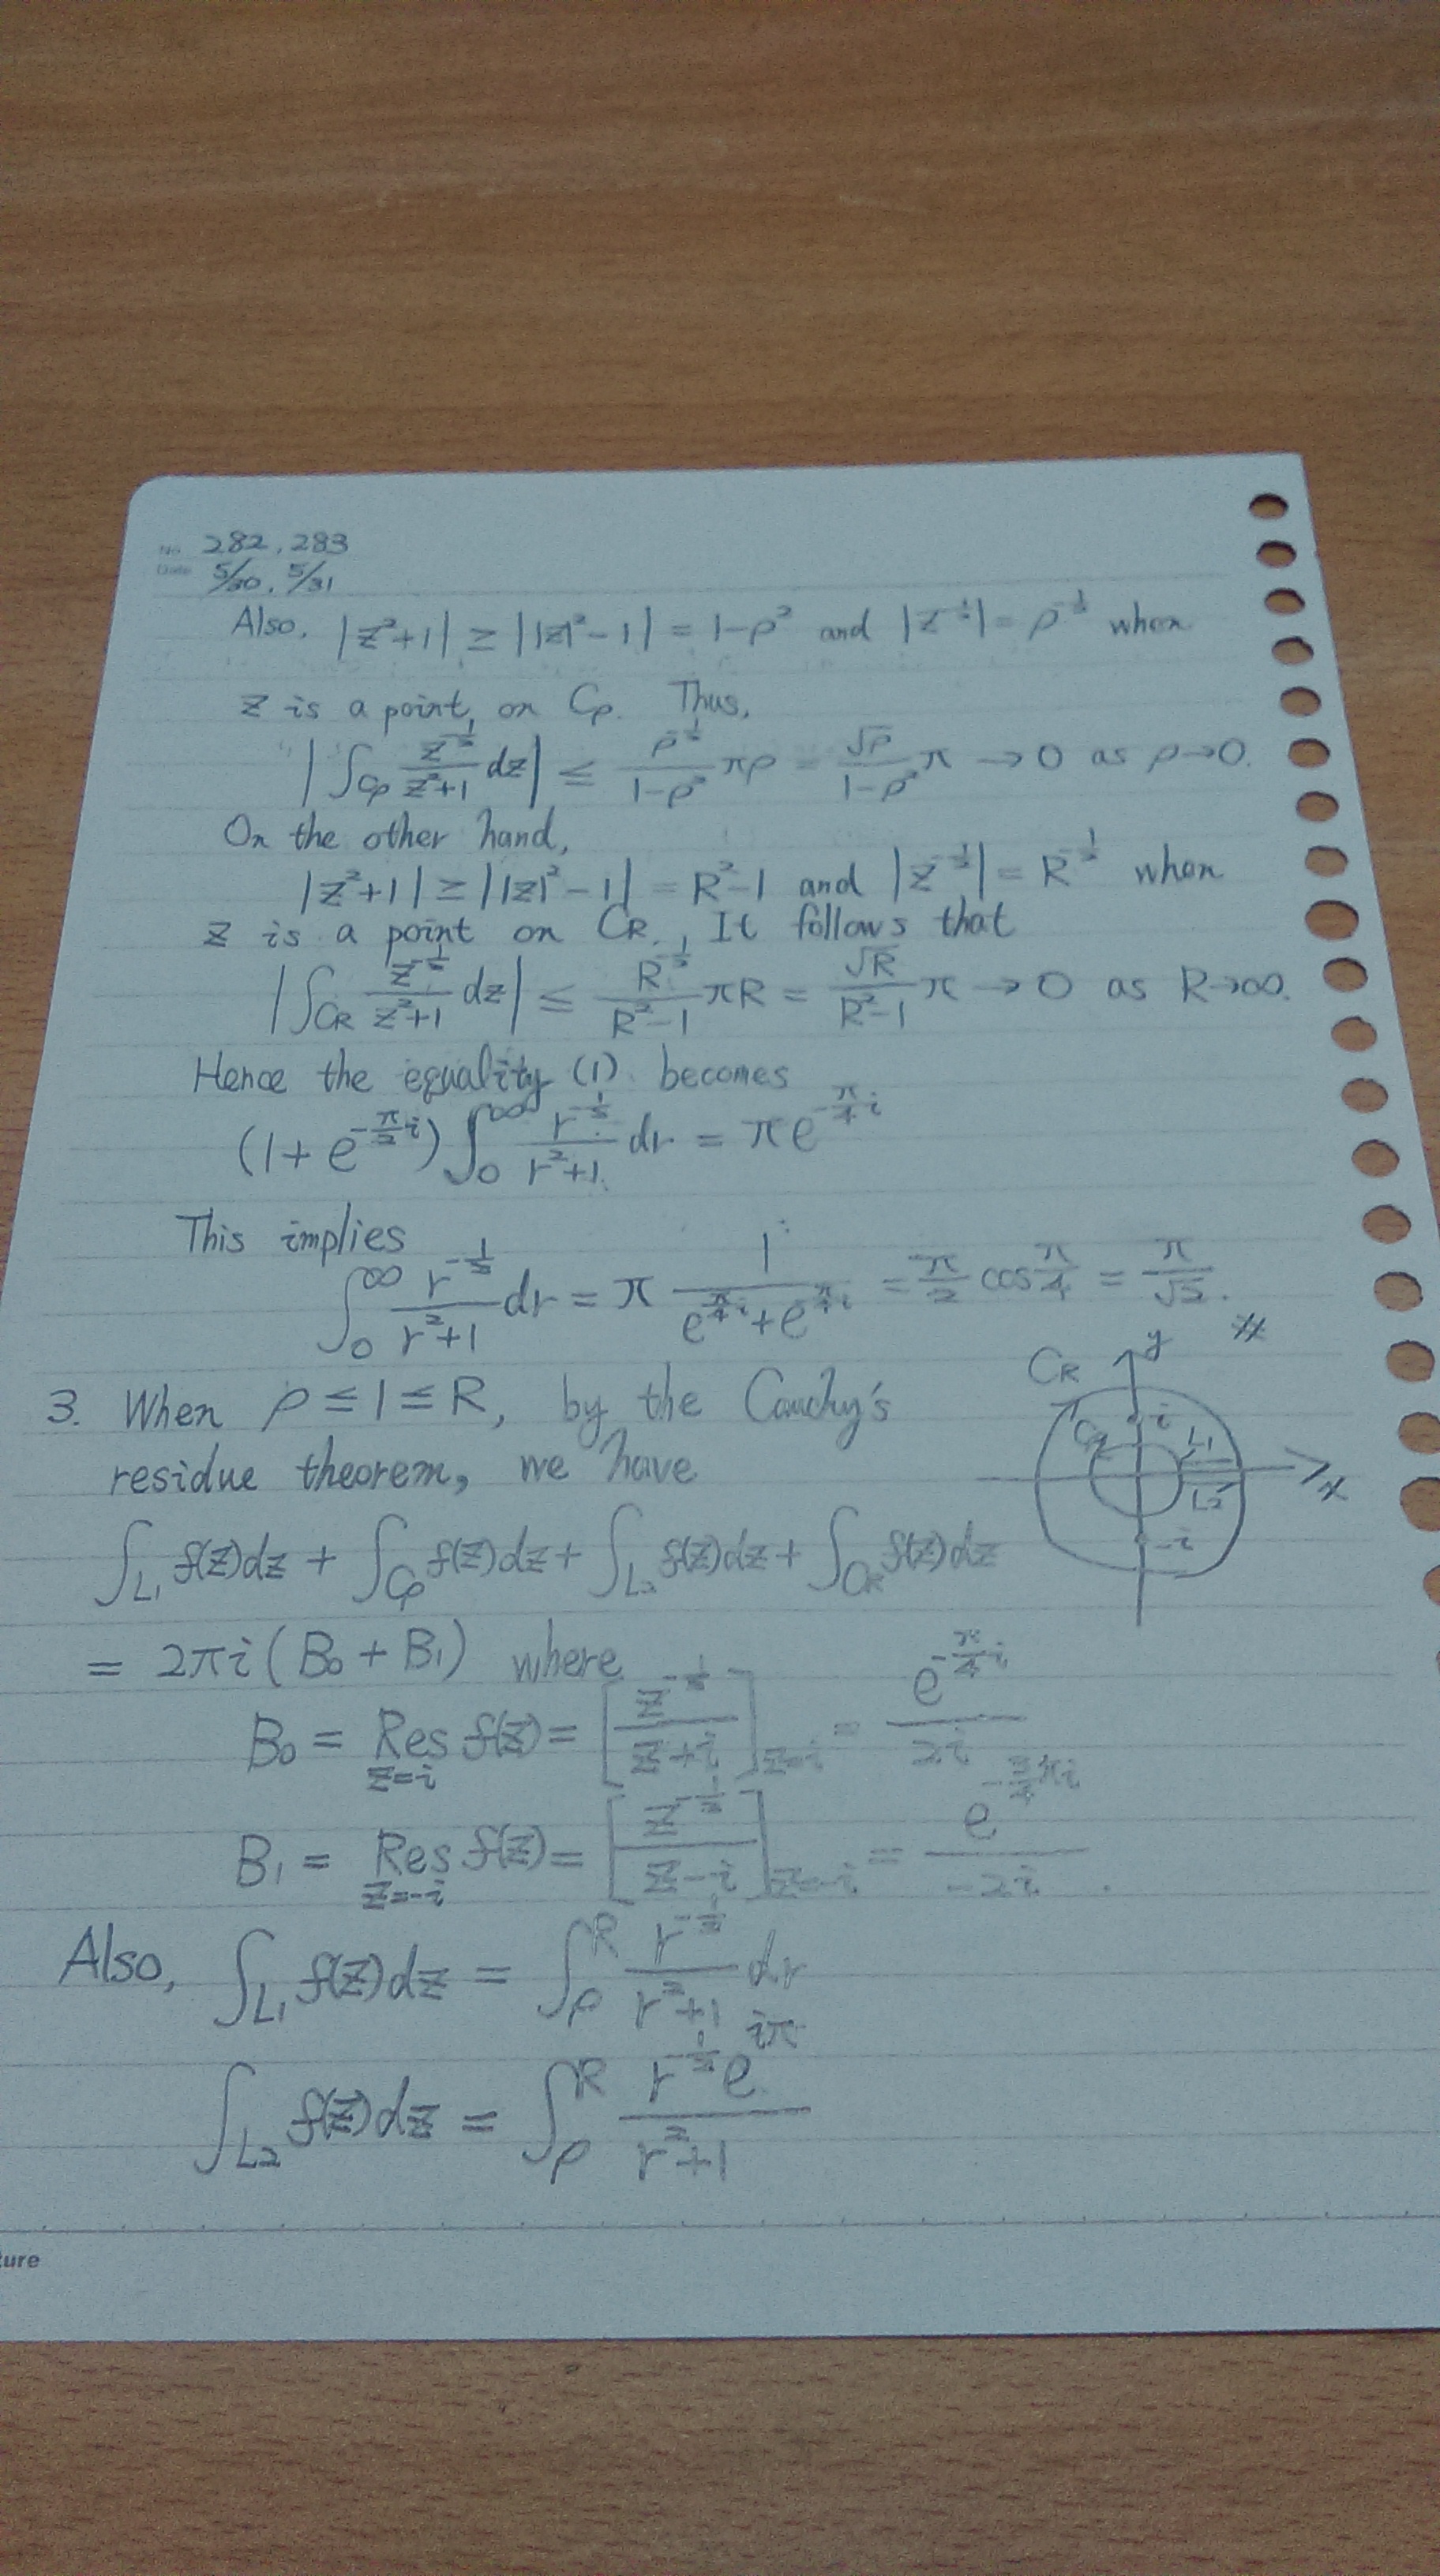 No. 282, 283
Date 5/30, 5/31
Also, |z²+1| ≥ ||z|²-1| = 1-ρ² and |z^{-1/2}| = ρ^{-1/2} when
z is a point on Cρ. Thus,
|∫_{Cρ} z^{-1/2}/(z²+1) dz| ≤ ρ^{-1/2}/(1-ρ²) πρ = √ρ/(1-ρ²) π → 0 as ρ→0.
On the other hand,
|z²+1| ≥ ||z|²-1| = R²-1 and |z^{-1/2}| = R^{-1/2} when
z is a point on C_R. It follows that
|∫_{C_R} z^{-1/2}/(z²+1) dz| ≤ R^{-1/2}/(R²-1) πR = √R/(R²-1) π → 0 as R→∞.
Hence the equality (1) becomes
(1+e^{-π/2 i}) ∫_0^∞ r^{-1/2}/(r²+1) dr = πe^{-π/4 i}
This implies
∫_0^∞ r^{-1/2}/(r²+1) dr = π 1/(e^{π/4 i}+e^{-π/4 i}) = π/2 cos π/4 = π/√2. #
3. When ρ ≤ 1 ≤ R, by the Cauchy's
residue theorem, we have
C_R y
i
Cρ L1
x
L2
-i
∫_{L1} f(z)dz + ∫_{Cρ} f(z)dz + ∫_{L2} f(z)dz + ∫_{C_R} f(z)dz
= 2πi(B₀ + B₁) where
B₀ = Res_{z=i} f(z) = [z^{-1/2}/(z+i)]_{z=i} = e^{-π/4 i}/(2i)
B₁ = Res_{z=-i} f(z) = [z^{-1/2}/(z-i)]_{z=-i} = e^{-3/4 πi}/(-2i).
Also, ∫_{L1} f(z)dz = ∫_ρ^R r^{-1/2}/(r²+1) dr
∫_{L2} f(z)dz = ∫_ρ^R r^{-1/2}e^{iπ}/(r²+1)
ture